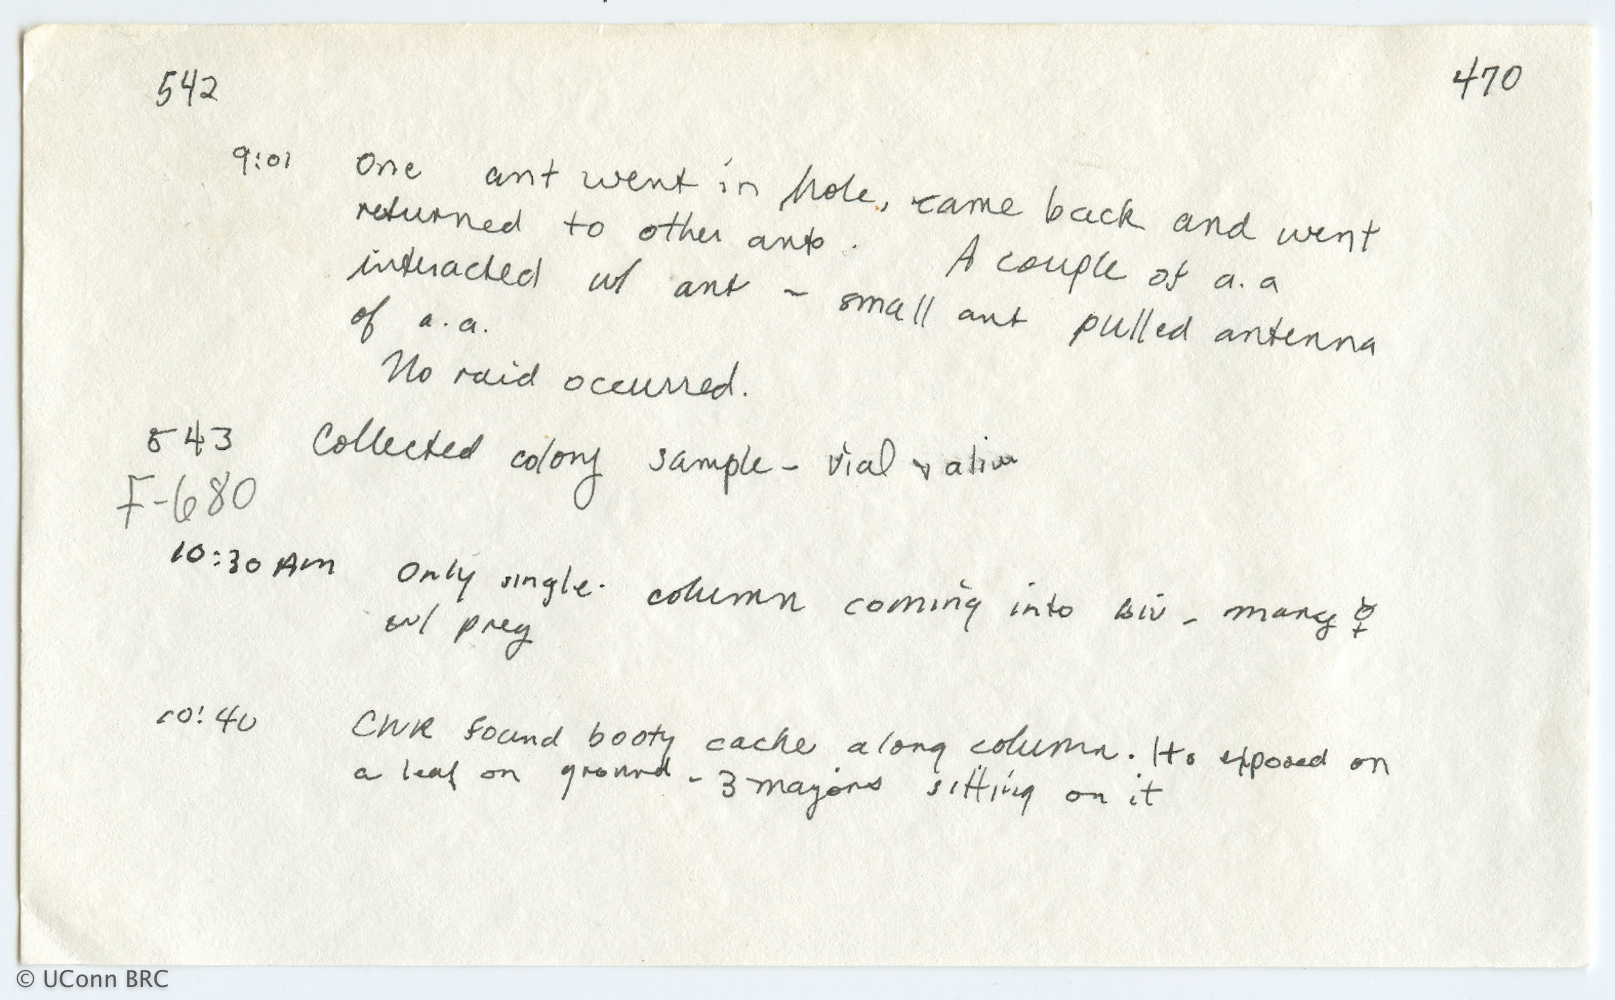 542 470
9:01 One ant went in hole, came back and went
returned to other ants. A couple of a.a
interacted w/ ant - small ant pulled antenna
of a.a.
No raid occurred.
543 Collected colony sample - vial
F-680
10:30 AM Only single column coming into biv - many ☿
w/ prey
10:40 CWR found booty cache along column. Its exposed on
a leaf on ground - 3 majors sitting on it
© UConn BRC